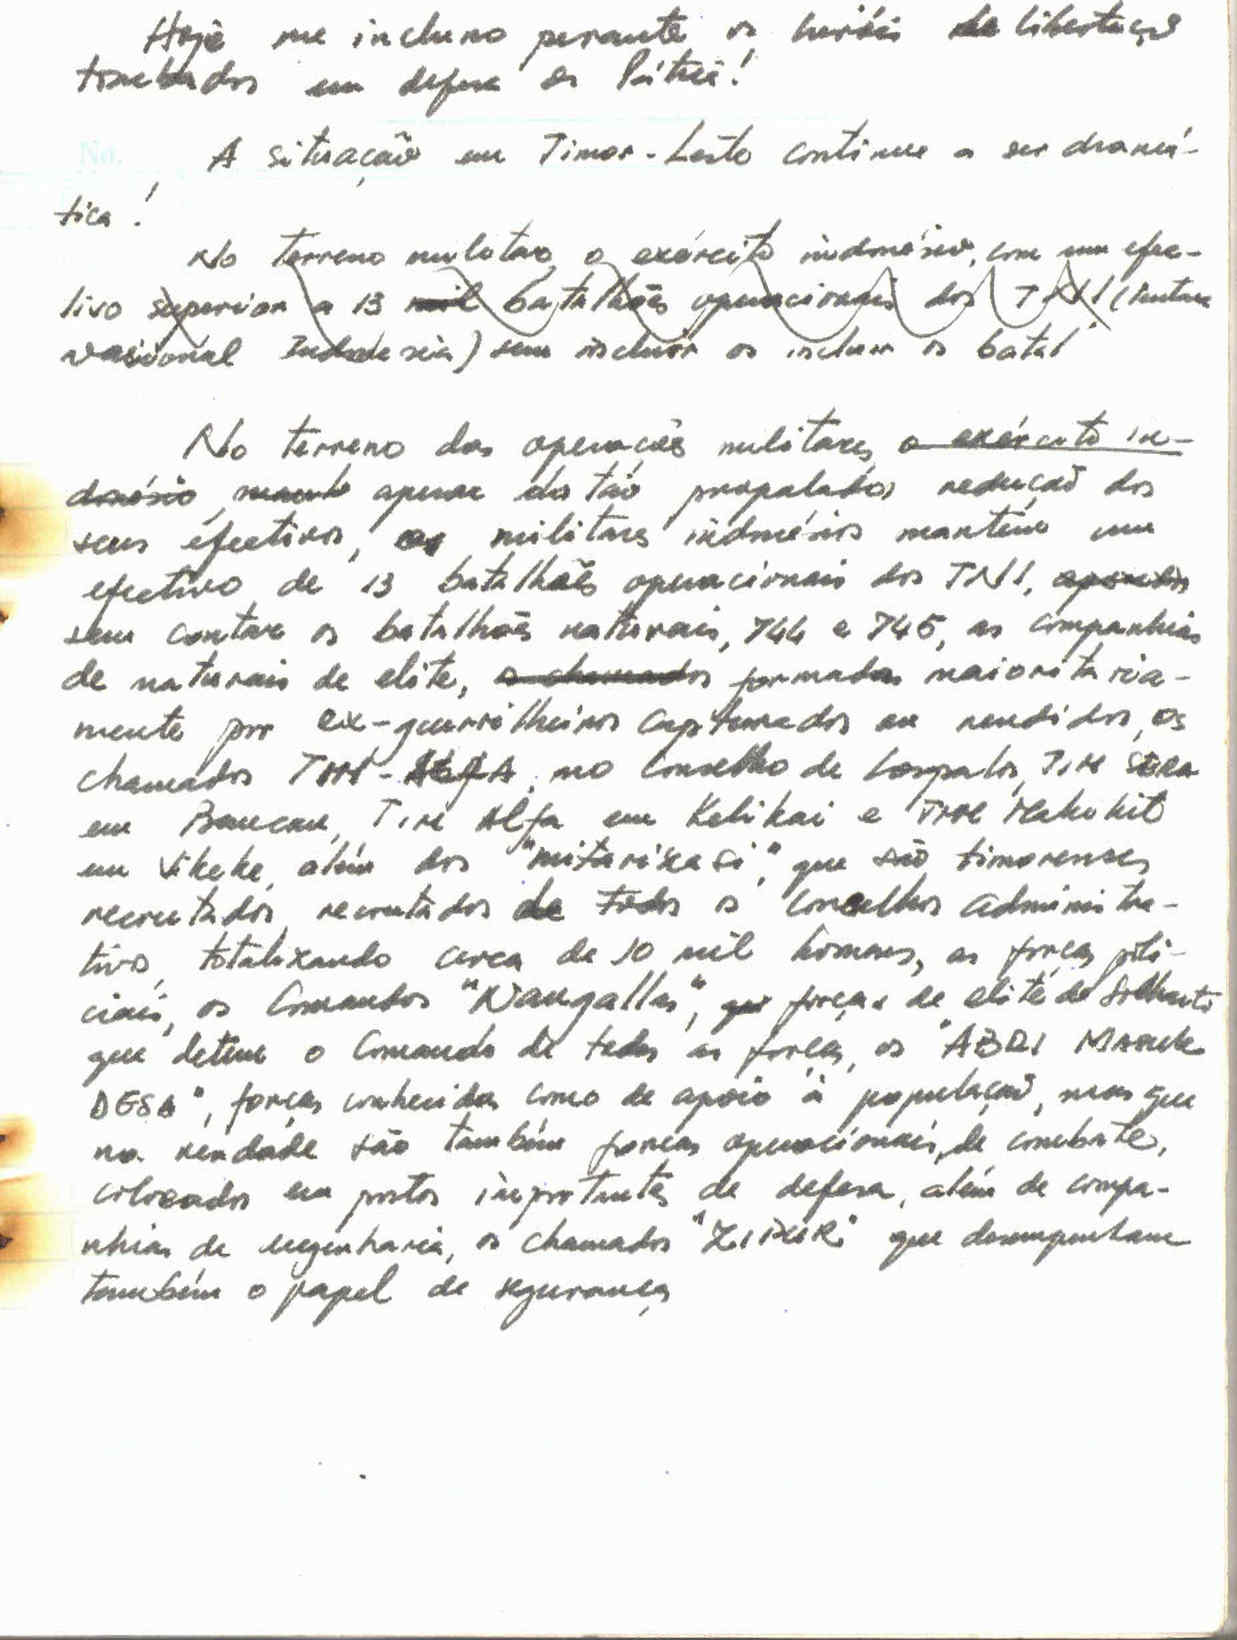 Hoje me inclino perante os heróis de libertação
tombados em defesa da Pátria!
A situação em Timor-Leste continua a ser dramá-
tica!
No terreno militar, o exército indonésio, com um efec-
tivo superior a 13 mil batalhões operacionais dos TNI (Tentara
Nasional Indonesia) sem incluir os incluir os batal
No terreno das operações militares, o exército in-
donésio, apesar da tão propalada redução dos
seus efectivos, os militares indonésios mantêm um
efectivo de 13 batalhões operacionais dos TNI,
sem contar os batalhões naturais, 744 e 745, as companhias
de naturais de elite, o chamados formadas maioritaria-
mente por ex-guerrilheiros capturados ou rendidos, os
chamados TIM-ALFA, no Conselho de Lospalos, TIM SERA
em Baucau, TIM Alfa em Kelikai e TIM Makikit
em Vikeke, além dos "mitarixasi", que são timorenses
recrutados, recrutados de todos os Concelhos administra-
tivos, totalizando cerca de 10 mil homens, as forças poli-
ciais, os Comandos "Nangallas", que forças de elite de
que detem o Comando de todas as forças, os "ABRI MASUK
DESA", forças conhecidas como de apoio à população, mas que
na verdade são também forças operacionais, de combate,
colocados em postos importantes de defesa, além de compa-
nhias de engenharia, os chamados "ZIPUR" que desempenham
também o papel de segurança